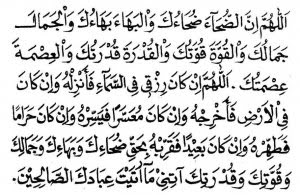 اَللّٰهُمَّ اِنَّ الضُّحَآءَ ضُحَاءُكَ وَالْبَهَاءَ بَهَاءُكَ وَالْجَمَالَ
جَمَالُكَ وَالْقُوَّةَ قُوَّتُكَ وَالْقُدْرَةَ قُدْرَتُكَ وَالْعِصْمَةَ
عِصْمَتُكَ. اَللّٰهُمَّ اِنْ كَانَ رِزْقِى فِى السَّمَآءِ فَأَنْزِلْهُ وَاِنْ كَانَ
فِى الْاَرْضِ فَأَخْرِجْهُ وَاِنْ كَانَ مُعَسَّرًا فَيَسِّرْهُ وَاِنْ كَانَ حَرَامًا
فَطَهِّرْهُ وَاِنْ كَانَ بَعِيْدًا فَقَرِّبْهُ بِحَقِّ ضُحَاءِكَ وَبَهَاءِكَ وَجَمَالِكَ
وَقُوَّتِكَ وَقُدْرَتِكَ آتِنِىْ مَآاَتَيْتَ عِبَادَكَ الصَّالِحِيْنَ.